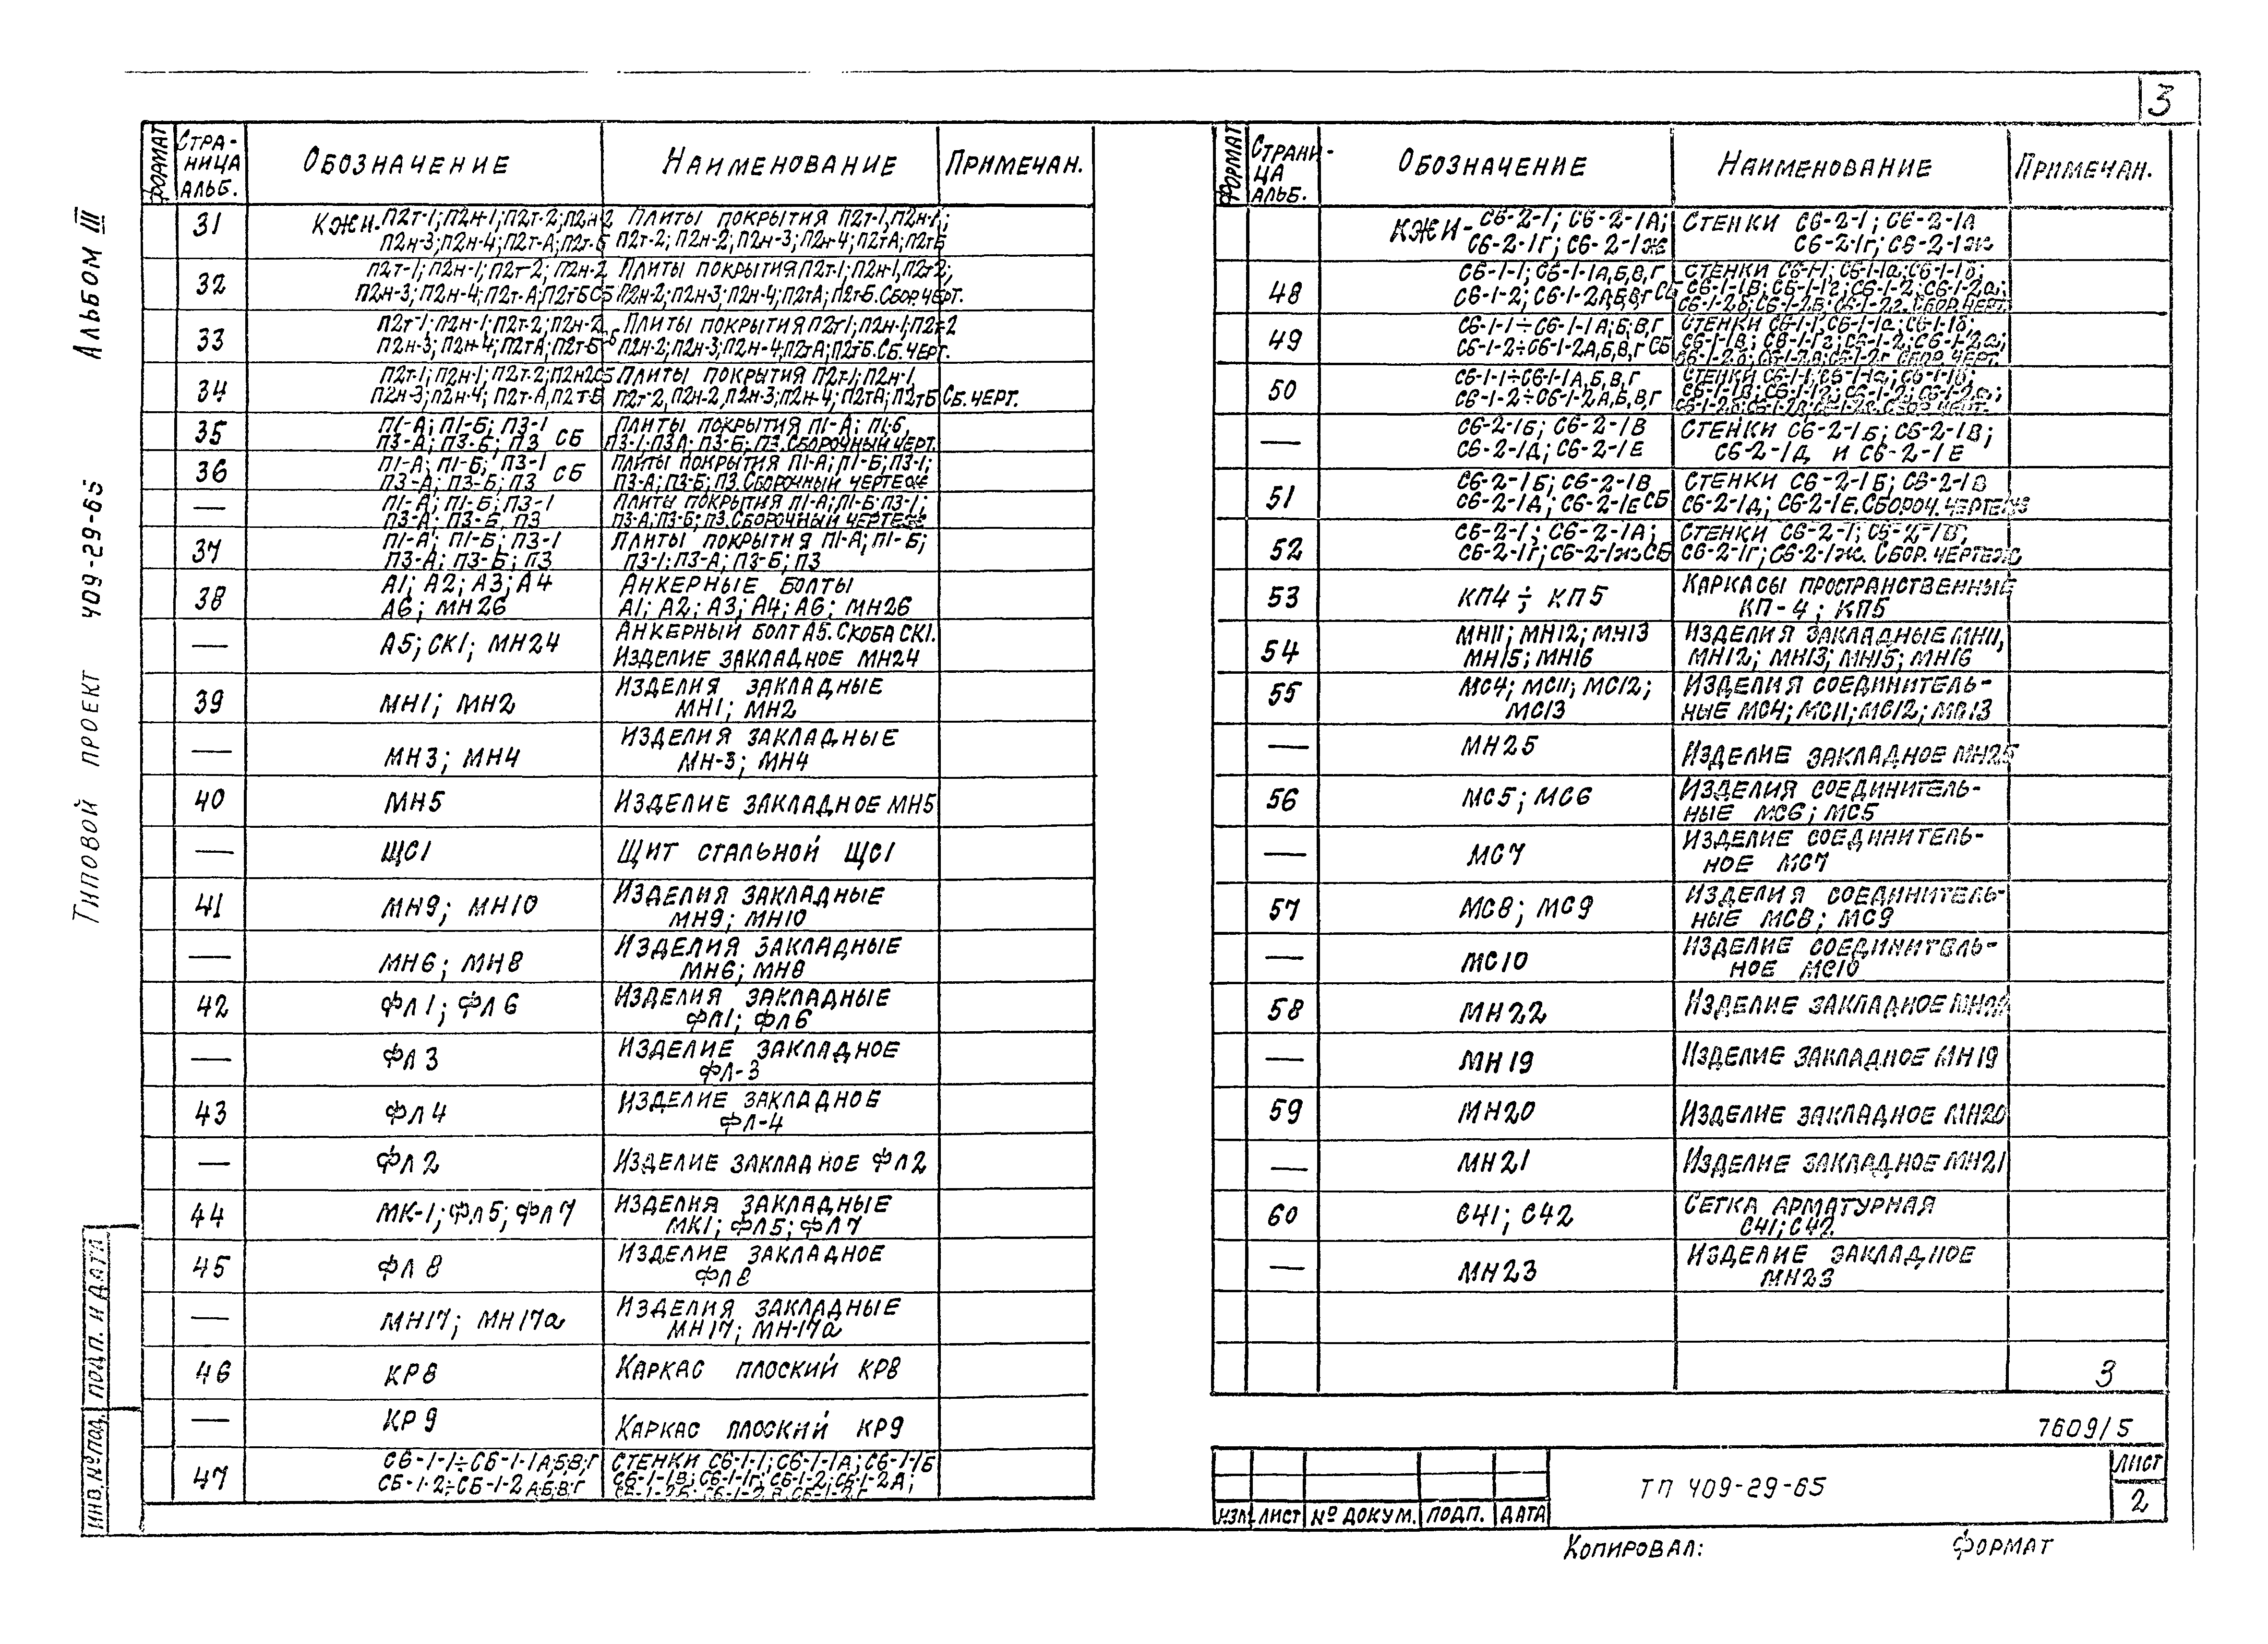 3
Альбом III
Типовой проект 409-29-65
Формат
Стра-
ница
альб.
Обозначение
Наименование
Примечан.
31
КЖИ-П2т-1; П2н-1; П2т-2; П2н-2
П2н-3; П2н-4; П2т-А; П2т-Б
Плиты покрытия П2т-1, П2н-1;
П2т-2; П2н-2; П2н-3; П2н-4; П2тА; П2тБ
32
П2т-1; П2н-1; П2т-2; П2н-2
П2н-3; П2н-4; П2т-А; П2тБ СБ
Плиты покрытия П2т-1; П2н-1, П2т-2;
П2н-2; П2н-3; П2н-4; П2тА; П2т-Б. Сбор. черт.
33
П2т-1; П2н-1; П2т-2; П2н-2
П2н-3; П2н-4; П2тА; П2т-Б
Плиты покрытия П2т1; П2н-1; П2т-2
П2н-2; П2н-3; П2н-4; П2тА; П2тБ. Сб. черт.
34
П2т-1; П2н-1; П2т-2; П2н2 СБ
П2н-3; П2н-4; П2т-А, П2т-Б
Плиты покрытия П2т-1; П2н-1
П2т-2, П2н-2, П2н-3; П2н-4; П2тА; П2тБ Сб. черт.
35
П1-А; П1-Б; П3-1
П3-А; П3-Б; П3 СБ
Плиты покрытия П1-А; П1-Б,
П3-1; П3А; П3-Б; П3. Сборочный черт.
36
П1-А; П1-Б; П3-1
П3-А; П3-Б; П3 СБ
Плиты покрытия П1-А; П1-Б; П3-1;
П3-А; П3-Б; П3. Сборочный чертеж
—
П1-А; П1-Б; П3-1
П3-А; П3-Б, П3
Плиты покрытия П1-А; П1-Б П3-1;
П3-А; П3-Б; П3. Сборочный чертеж
37
П1-А; П1-Б; П3-1
П3-А; П3-Б; П3
Плиты покрытия П1-А; П1-Б;
П3-1; П3-А; П3-Б; П3
38
А1; А2; А3; А4
А6; МН26
Анкерные болты
А1; А2; А3; А4; А6; МН26
—
А5; СК1; МН24
Анкерный болт А5. Скоба СК1.
Изделие закладное МН24
39
МН1; МН2
Изделия закладные
МН1; МН2
—
МН3; МН4
Изделия закладные
МН-3; МН4
40
МН5
Изделие закладное МН5
—
ЩС1
Щит стальной ЩС1
41
МН9; МН10
Изделия закладные
МН9; МН10
—
МН6; МН8
Изделия закладные
МН6; МН8
42
ФЛ1; ФЛ6
Изделия закладные
ФЛ1; ФЛ6
—
ФЛ3
Изделие закладное
ФЛ-3
43
ФЛ4
Изделие закладное
ФЛ-4
—
ФЛ2
Изделие закладное ФЛ2
44
МК-1; ФЛ5; ФЛ7
Изделия закладные
МК1; ФЛ5; ФЛ7
45
ФЛ8
Изделие закладное
ФЛ8
—
МН17; МН17а
Изделия закладные
МН17; МН-17а
46
КР8
Каркас плоский КР8
—
КР9
Каркас плоский КР9
47
СБ-1-1÷СБ-1-1А;Б;В;Г
СБ-1-2÷СБ-1-2А;Б;В;Г
Стенки СБ-1-1; СБ-1-1А; СБ-1-1Б
СБ-1-1В; СБ-1-1Г; СБ-1-2; СБ-1-2А;
Формат
Страни-
ца
альб.
Обозначение
Наименование
Примечан.
КЖИ-СБ-2-1; СБ-2-1А;
СБ-2-1Г; СБ-2-1Ж
Стенки СБ-2-1; СБ-2-1А
СБ-2-1Г; СБ-2-1Ж
48
СБ-1-1; СБ-1-1А,Б,В,Г
СБ-1-2; СБ-1-2А,Б,В,Г СБ
Стенки СБ-1-1; СБ-1-1а; СБ-1-1б;
СБ-1-1В; СБ-1-1г; СБ-1-2; СБ-1-2а;
СБ-1-2б; СБ-1-2В; СБ-1-2г. Сбор. черт.
49
СБ-1-1÷СБ-1-1А;Б;В,Г
СБ-1-2÷СБ-1-2А,Б,В,Г СБ
Стенки СБ-1-1; СБ-1-1а; СБ-1-1б;
СБ-1-1В; СБ-1-1г; СБ-1-2; СБ-1-2а;
50
СБ-1-1÷СБ-1-1А,Б,В,Г
СБ-1-2÷СБ-1-2А,Б,В,Г
Стенки СБ-1-1; СБ-1-1а; СБ-1-1б;
СБ-1-1В; СБ-1-1г; СБ-1-2; СБ-1-2а;
—
СБ-2-1Б; СБ-2-1В
СБ-2-1Д; СБ-2-1Е
Стенки СБ-2-1Б; СБ-2-1В;
СБ-2-1Д и СБ-2-1Е
51
СБ-2-1Б; СБ-2-1В
СБ-2-1Д; СБ-2-1Е СБ
Стенки СБ-2-1Б; СБ-2-1В
СБ-2-1Д; СБ-2-1Е. Сбороч. чертеж
52
СБ-2-1; СБ-2-1А;
СБ-2-1Г; СБ-2-1Ж СБ
Стенки СБ-2-1; СБ-2-1В;
СБ-2-1Г; СБ-2-1Ж. Сбор. чертеж
53
КП4÷КП5
Каркасы пространственные
КП-4; КП5
54
МН11; МН12; МН13
МН15; МН16
Изделия закладные МН11,
МН12; МН13; МН15; МН16
55
МС4; МС11; МС12;
МС13
Изделия соединитель-
ные МС4; МС11; МС12; МС13
—
МН25
Изделие закладное МН25
56
МС5; МС6
Изделия соединитель-
ные МС6; МС5
—
МС7
Изделие соединитель-
ное МС7
57
МС8; МС9
Изделия соединитель-
ные МС8; МС9
—
МС10
Изделие соединитель-
ное МС10
58
МН22
Изделие закладное МН22
—
МН19
Изделие закладное МН19
59
МН20
Изделие закладное МН20
—
МН21
Изделие закладное МН21
60
С41; С42
Сетка арматурная
С41; С42
—
МН23
Изделие закладное
МН23
3
7609/5
Изм. Лист № докум. Подп. Дата
ТП 409-29-65
Лист
2
Копировал: Формат
Инв. № под. Подп. и дата